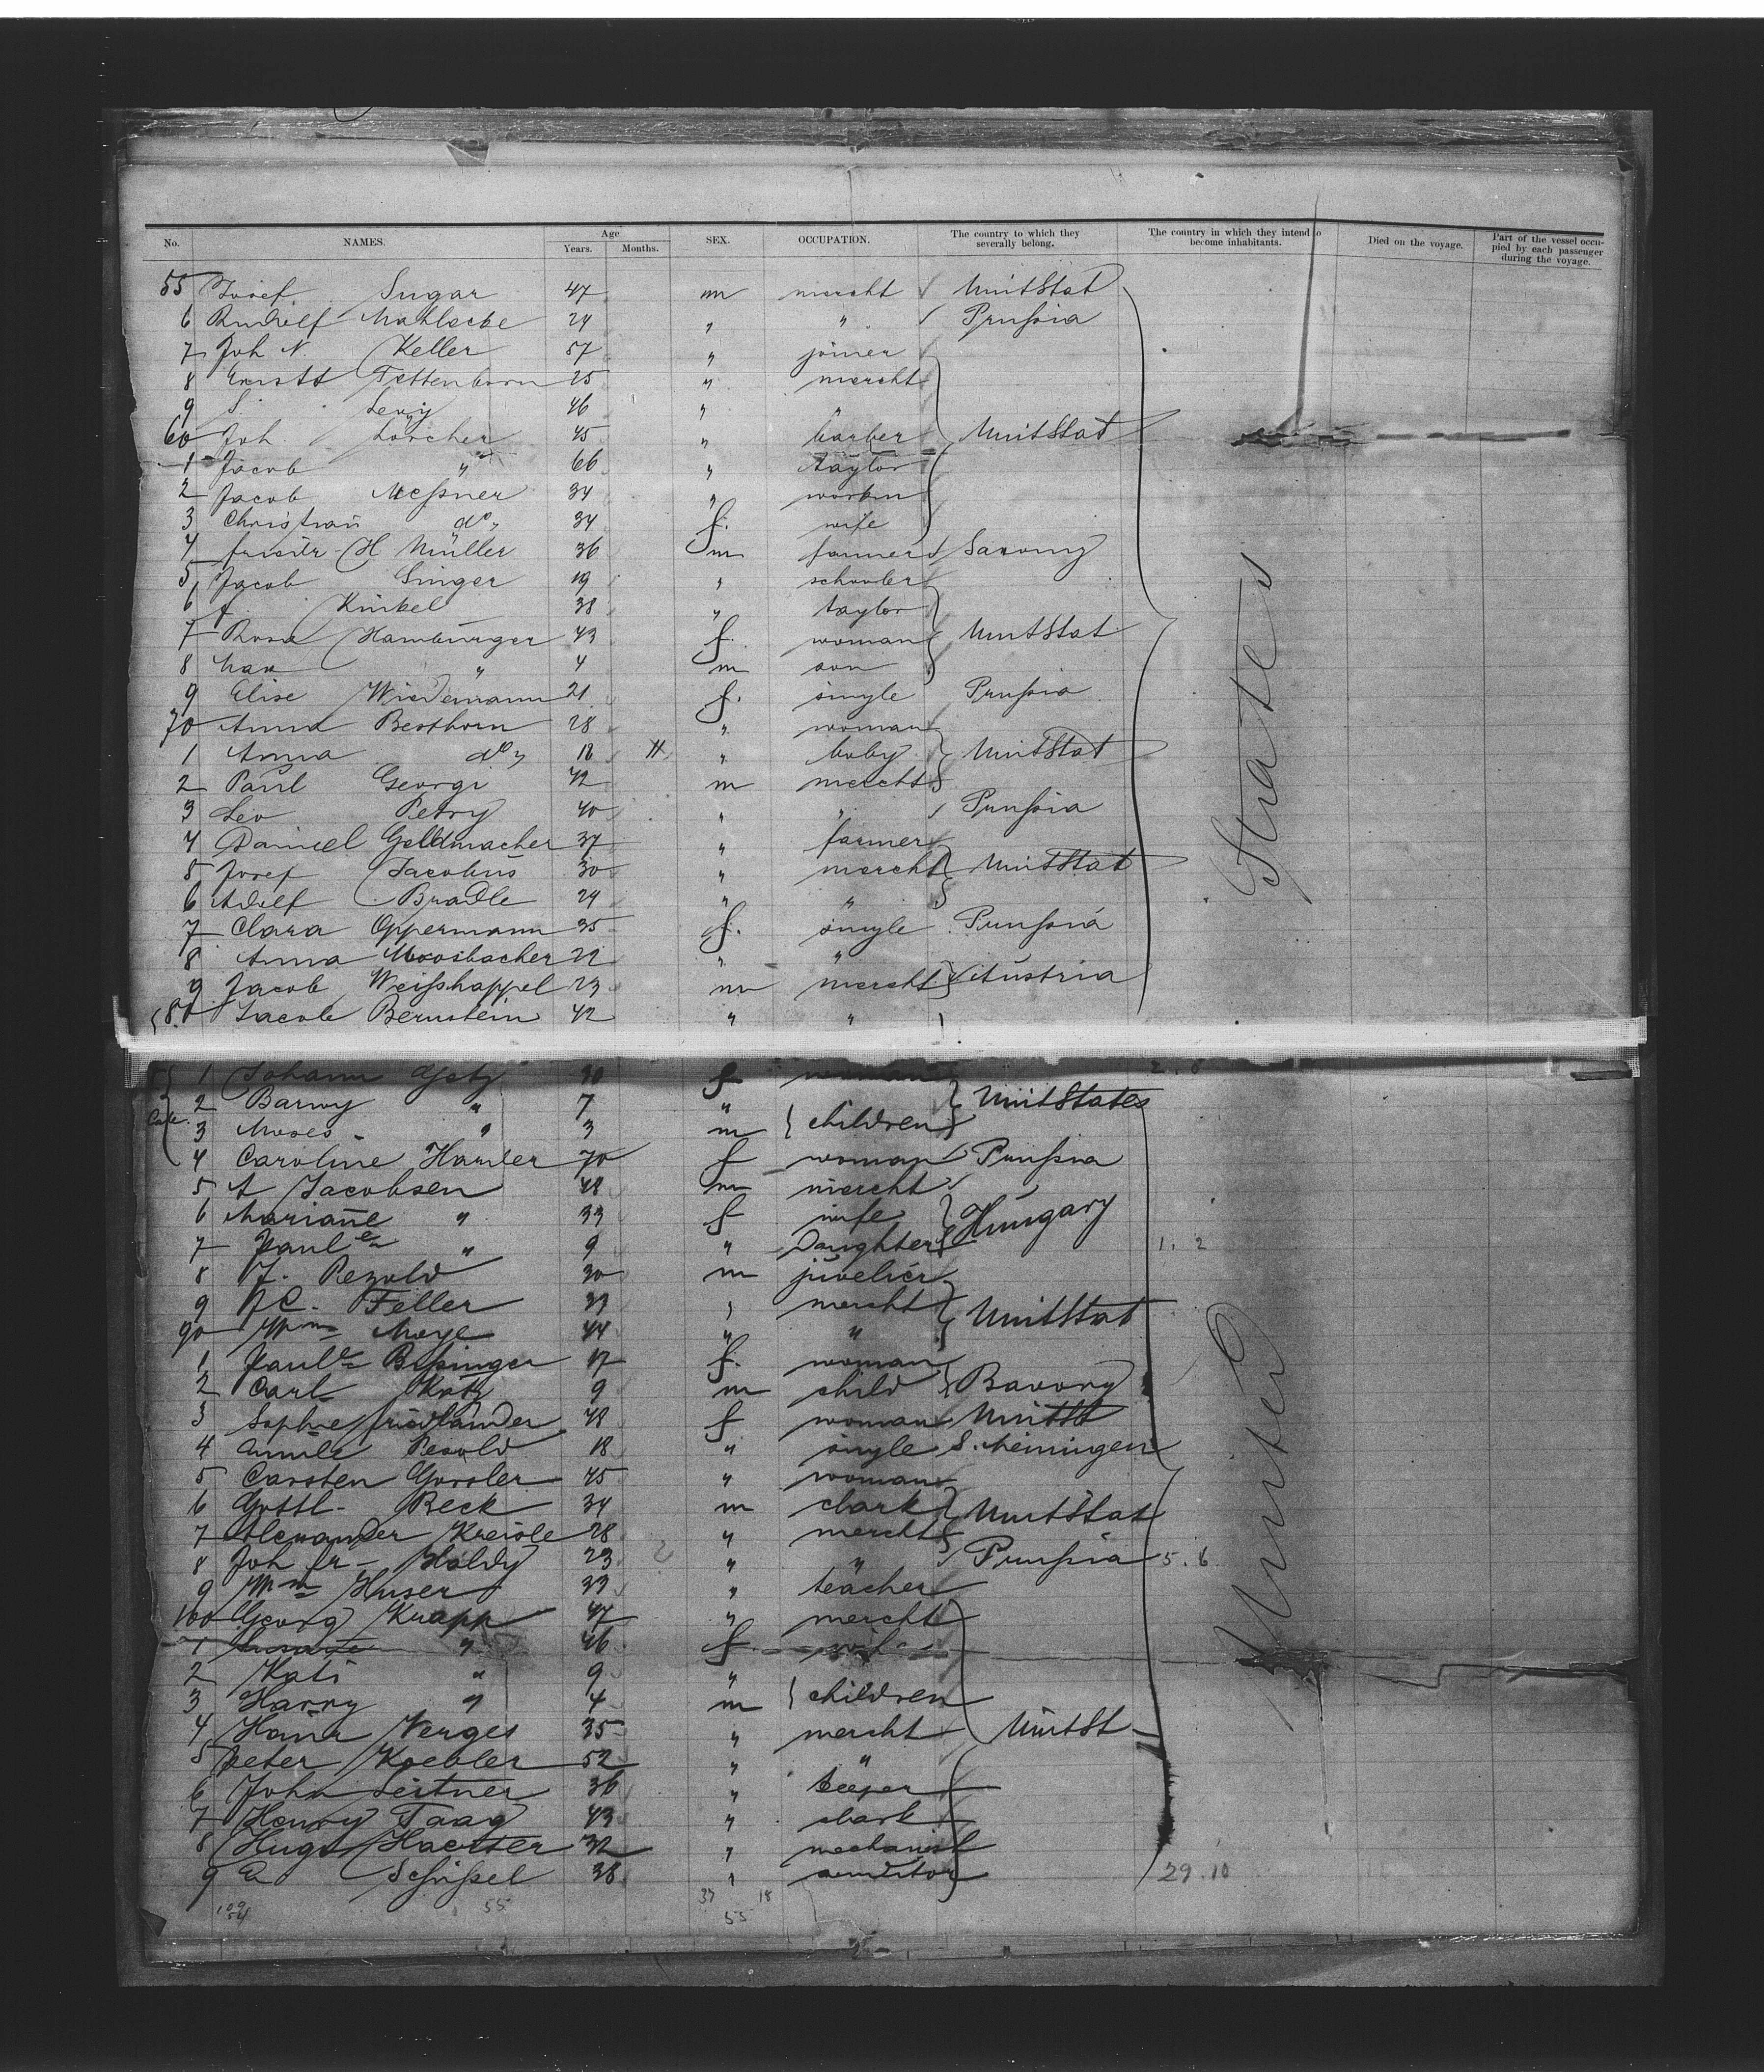 No. NAMES. Age Years. Months. SEX. OCCUPATION. The country to which they severally belong. The country in which they intend to become inhabitants. Died on the voyage. Part of the vessel occupied by each passenger during the voyage.
55 Josef Sugar 47 m mercht UnitStat
6 Rudolf 24 " " Prußia
7 Joh N. Keller 57 " joiner
8 Ernstt Tettenborn 25 " mercht
9 S. Levy 46 " "
60 Joh. Lorcher 45 " barber UnitStat
1 Jacob " 66 " taylor
2 Jacob Meßner 34 "
3 Christian do 34 f. wife
4 H Müller 36 m farmer Saxony
5 Jacob Singer 19 " schooler
6 J. Kinkel 38 " taylor
7 Rosa Hamburger 43 f. woman UnitStat
8 Max " 4 m son
9 Elise Wiedemann 21 f. single Prußia
70 Anna Besthorn 28 " woman
1 Anna do 18 " baby UnitStat
2 Paul Georgi 42 m mercht
3 Leo Petry 40 " " Prußia
4 Daniel Goldmacher 37 " farmer
5 Josef Jacobus 30 " mercht UnitStat
6 Adolf Bradle 24 " "
7 Clara Oppermann 35 f. single Prußia
8 Anna Moosbacher 22 " "
9 Jacob Weißhappel 23 m mercht Austria
80 Jacob Bernstein 42 " "
1 Johann Getz 30 f woman 2.0
2 Barny " 7 " UnitStates
3 Moses " 3 m children
4 Caroline Hamler 70 f woman Prußia
5 A Jacobsen 48 m mercht
6 Mariañe " 33 f wife Hungary
7 Paule " 9 " Daughter 1. 2
8 J. Pezold 30 m juvelier
9 Feller 33 " mercht UnitStat
90 Wm Moye 44 " "
1 Paule Beßinger 17 f. woman
2 Carl Katz 9 m child Bavory
3 Sophie Friedländer 48 f woman UnitSt
4 Pesold 18 " single S. Meiningen
5 Carsten Gorsler 45 " woman
6 Gottl. Beck 34 m clark UnitStat
7 Alexander Kreisle 28 " mercht
8 Joh Fr. Holdy 23 " " Prußia 5. 6
9 Wm Huser 33 " teacher
100 Georg Knapp 47 " mercht
1 " 46 f. wife
2 Kati " 9 "
3 Harry " 4 m children
4 Verges 35 " mercht UnitSt
5 Peter Koebler 52 " "
6 John Leitner 36 "
7 Henry Taag 43 " clark
8 Hugo Haerter 32 " mechanist
9 E Schißel 38 " 29.10
109 54 55 37 18
55
United States